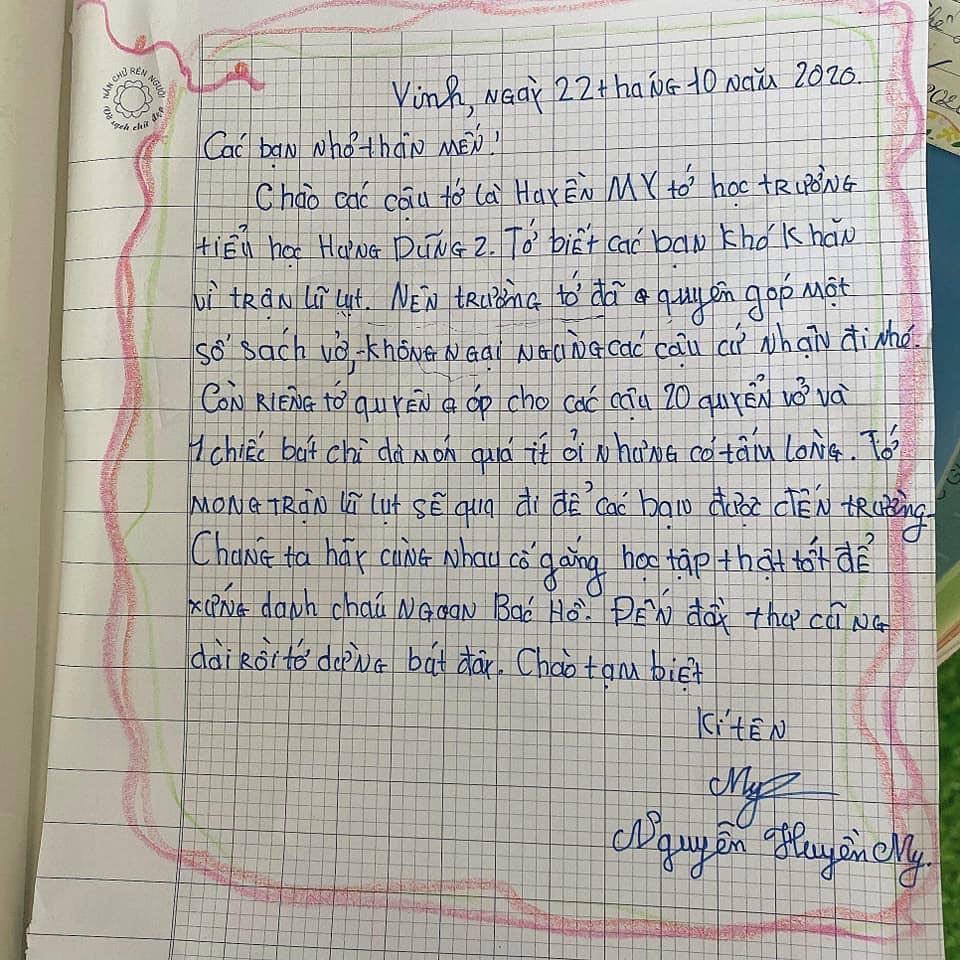 NẮN CHỮ RÈN NGƯỜI
Vở sạch chữ đẹp
Vinh, ngày 22 tháng 10 năm 2020.
Các bạn nhỏ thân mến!
Chào các cậu tớ là Huyền My tớ học trường
tiểu học Hưng Dũng 2. Tớ biết các bạn khó khăn
vì trận lũ lụt. Nên trường tớ đã quyên góp một
số sách vở, không ngại ngùng các cậu cứ nhận đi nhé.
Còn riêng tớ quyên góp cho các cậu 20 quyển vở và
1 chiếc bút chì dù món quá ít ỏi nhưng có tấm lòng. Tớ
mong trận lũ lụt sẽ qua đi để các bạn được đến trường.
Chúng ta hãy cùng nhau cố gắng học tập thật tốt để
xứng danh cháu ngoan Bác Hồ. Đến đây thư cũng
dài rồi tớ dừng bút đây. Chào tạm biệt
Kí tên
My
Nguyễn Huyền My.